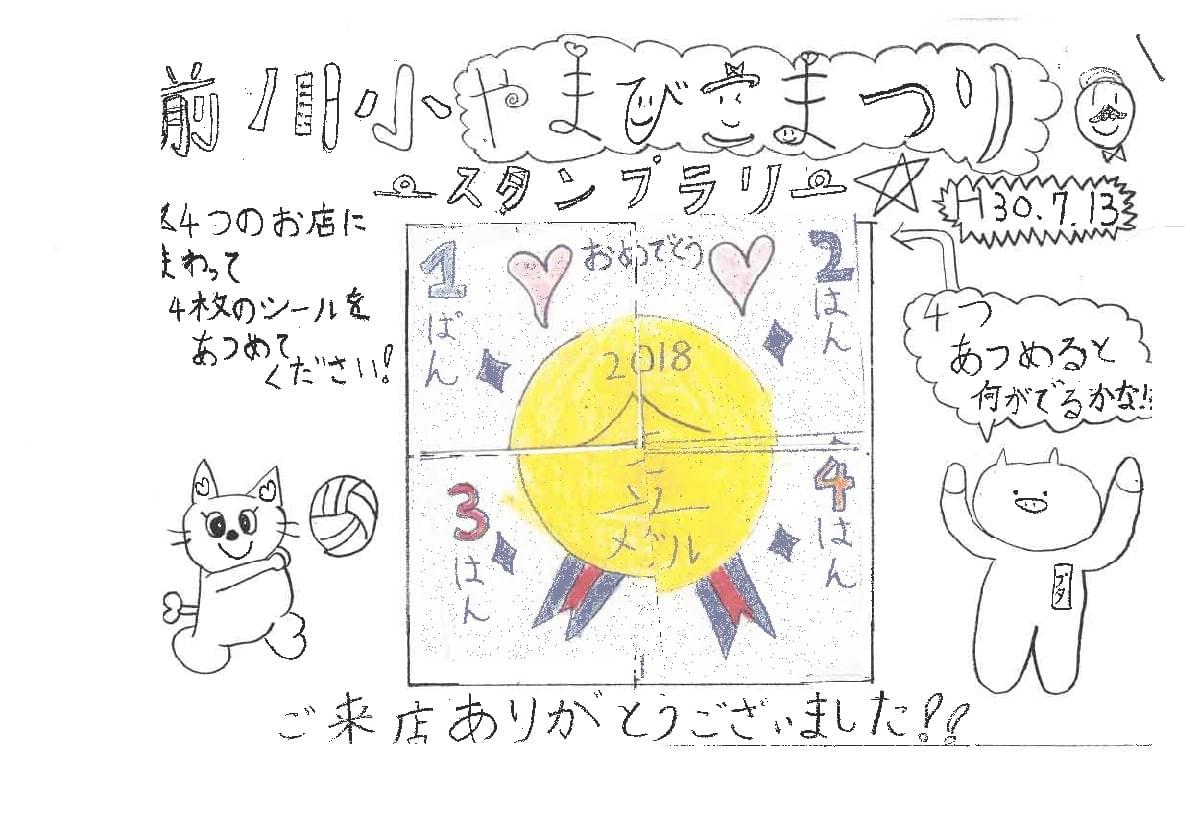 前川小やまびこまつり
スタンプラリー
H30.7.13
4つのお店に
まわって
4枚のシールを
あつめて
ください!
1ぱん
おめでとう
2はん
2018
金
メダル
3はん
4はん
4つ
あつめると
何がでるかな!!
ブタ
ご来店ありがとうございました!!